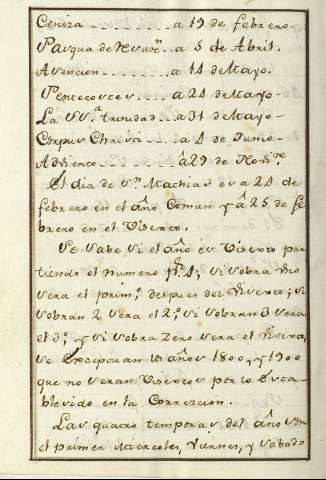 Ceniza . . . . . . . . a 19 de febrero.
Pasqua de Resurrn. . a 5 de Abril.
Asencion . . . . . . a 14 de Mayo.
Pentecostes . . . . . a 24 de Mayo.
La SSa. trinidad . . a 31 de Mayo.
Corpus Christi . . . a 4 de Junio.
Adviento . . . . . â 29 de Novre.
El dia de Sn. Mathias es a 24 de
febrero en el año Comun y â 25 de fe
brero en el Visexto.
Se sabe si el año es Visexto par
tiendo el numero pr. 4, si sobra uno
sera el primo. despues del Visexto; si
sobran 2 sera el 2o; si sobran 3 sera
el 3o; y si sobra Zero sera el Visexto,
se exceptuan los años 1800, y 1900
que no seran Visextos por lo esta
blesido en la Correzcion.
Las quatro temporas del año son
el primer Miercoles, Viernes, y Sabado